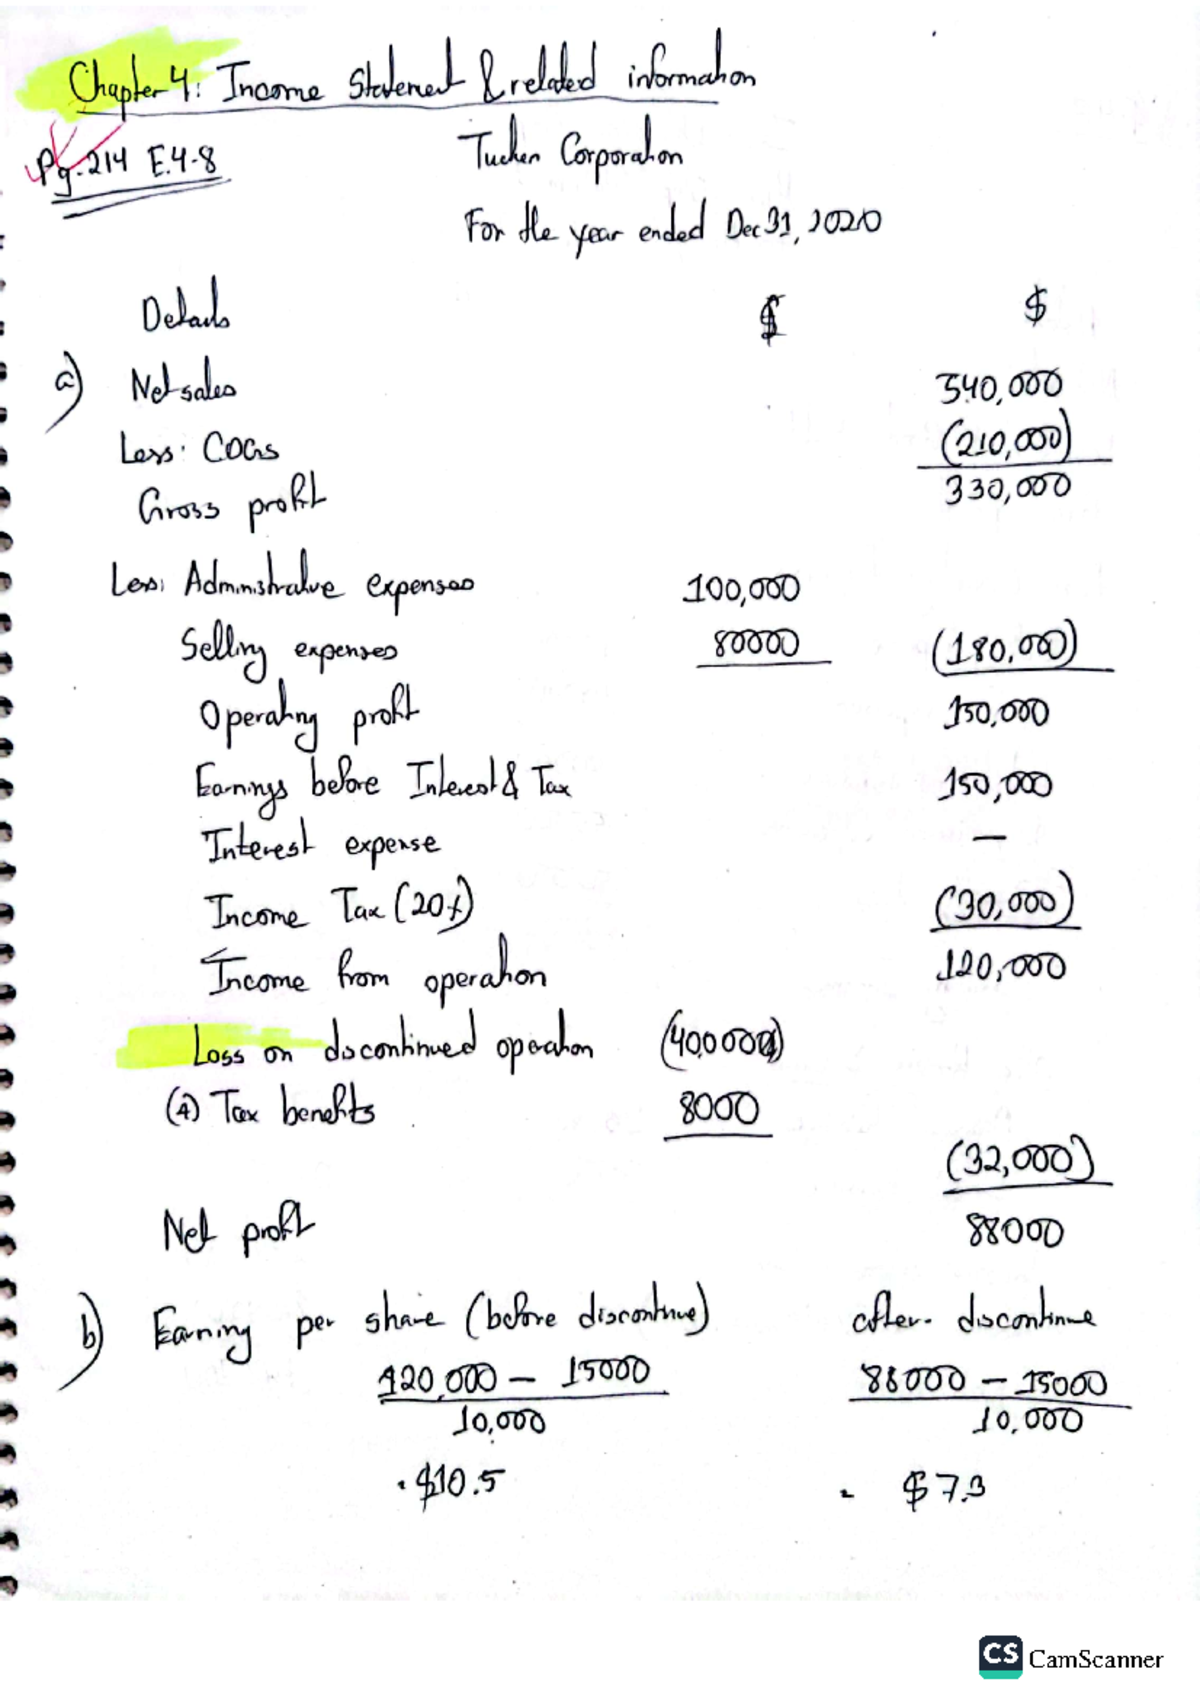 Chapter 4: Income Statement & related information
Pg-214 E.4-8
Tucker Corporation
For the year ended Dec 31, 2020
Details $ $
a) Net sales 540,000
Less: COGS (210,000)
Gross profit 330,000
Less: Administrative expenses 100,000
Selling expenses 80000 (180,000)
Operating profit 150,000
Earnings before Interest & Tax 150,000
Interest expense —
Income Tax (20%) (30,000)
Income from operation 120,000
Loss on discontinued operation (40,000)
Tax benefits 8000
(32,000)
Net profit 88000
b) Earning per share (before discontinue) after discontinue
120,000 - 15000 88000 - 15000
10,000 10,000
= $10.5 = $7.3
CS CamScanner